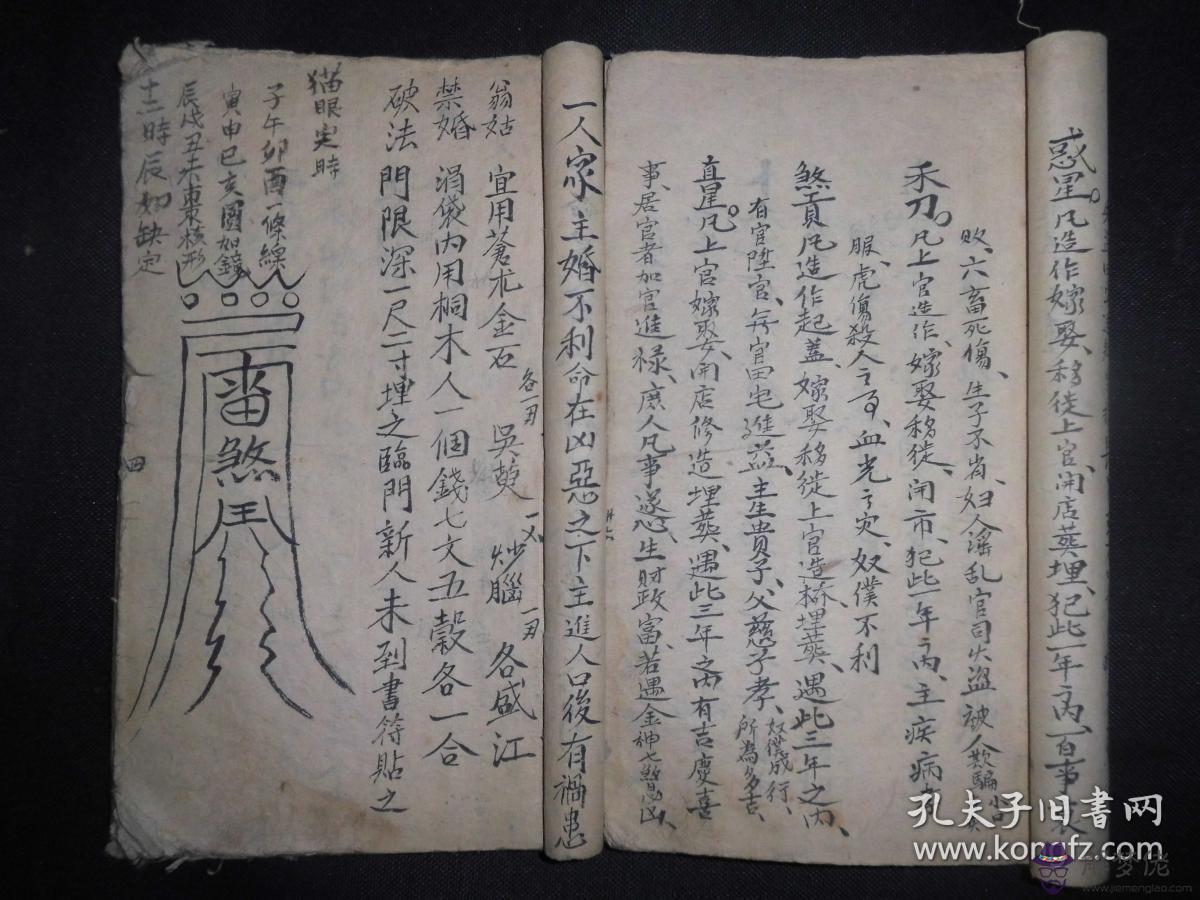 惑星。凡造作、嫁娶、移徙、上官、開店、葬埋、犯此一年內、百事
禾刀。凡上官、造作、嫁娶、移徙、開市、犯此一年之內、主疾病
敗、六畜死傷、生子不肖、妇人淫乱、官司火盜、被人欺騙、小口
服、虎傷殺人之事、血光之灾、奴僕不利
煞貢凡造作起蓋、嫁娶、移徙、上官、造橋、埋葬、遇此三年之內、
有官陞官、無官田宅進益、主生貴子、父慈子孝、奴僕成行、所為多吉、
直星。凡上官、嫁娶、開店、修造、埋葬、遇此三年之內有吉慶喜
事、居官者加官進祿、庶人凡事遂心、生財政富、若遇金神七煞凶、
一人家主婚不利命在凶惡之下主進人口後有禍患
翁姑 宜用蒼朮 金石 各一
禁婚 涓袋內用桐木人一個錢七文五穀各一合
破法 門限深一尺二寸埋之臨門新人未到書符貼之
猫眼定時
子午卯酉一條線
寅申巳亥圓如鏡
辰戌丑未棗核形
十二時辰如缺定
煞
四
孔夫子旧书网
www.kongfz.com
www.jiemenglao.com